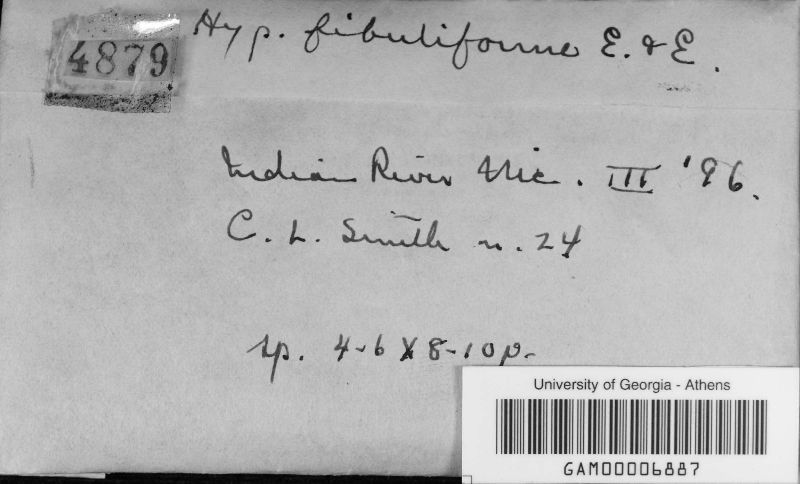 4879
Hyp. fibuliforme E. & E.
Indian River Nic. III '96.
C. L. Smith n. 24
sp. 4-6 X 8-10 p.
University of Georgia - Athens
GAM00006887